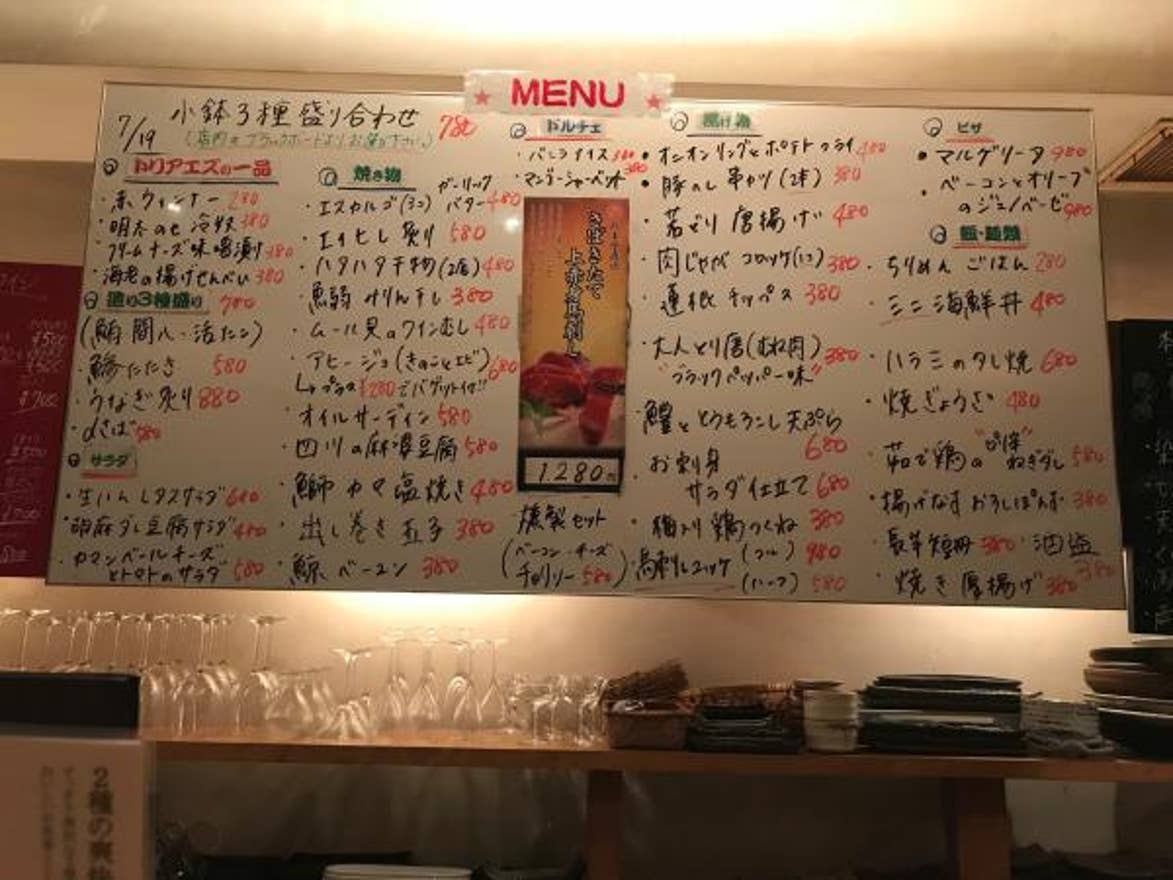 MENU
7/19 小鉢3種盛り合わせ 780
トリアエズの一品
・赤ウィンナー 280
・明太のせ冷奴 380
・クリームチーズ味噌漬け 380
・海老の揚げせんべい 380
造り3種盛り 780
(鮪 間八・活たこ)
・鰺たたき 580
・うなぎ炙り 880
・〆さば 580
サラダ
・生ハムレタスサラダ 680
・胡麻ダレ豆腐サラダ 480
・カマンベールチーズ
とトマトのサラダ 580
焼き物
・エスカルゴ(3コ) ガーリックバター 480
・エイヒレ炙り 580
・ハタハタ干物(2尾) 480
・鰯みりん干し 380
・ムール貝のワインむし 480
・アヒージョ(きのことエビ) 680
プラス¥280でバゲット付!!
・オイルサーディン 580
・四川の麻婆豆腐 580
・鰤カマ塩焼き 480
・出し巻き玉子 380
・鯨ベーコン 380
ドルチェ
・バニラアイス 380
・マンゴーシャーベット 380
さばきたて
1280円
燻製セット
(ベーコン・チーズ
チョリソー 580)
揚げ物
・オニオンリングとポテトフライ 480
・豚のし串かつ(2本) 380
・若どり唐揚げ 480
・肉じゃがコロッケ(1コ) 380
・蓮根チップス 380
・大人とり唐(むね肉) 380
"ブラックペッパー味"
・鱧ととうもろこし天ぷら
680
・お刺身
サラダ仕立て 680
・梅入り鶏つくね 380
・馬刺しユッケ (フル) 980
(ハーフ) 580
ピザ
・マルゲリータ 980
・ベーコンとオリーブ
のジェノベーゼ 980
飯・麺類
・ちりめんごはん 280
・ミニ海鮮丼 480
・ハラミのタレ焼 680
・焼ぎょうざ 480
・茹で鶏の"ピリ辛"ねぎダレ 580
・揚げなすおろしぽんず 380
・長芋短冊 380 ・酒盗 380
・焼き厚揚げ 380
2種の